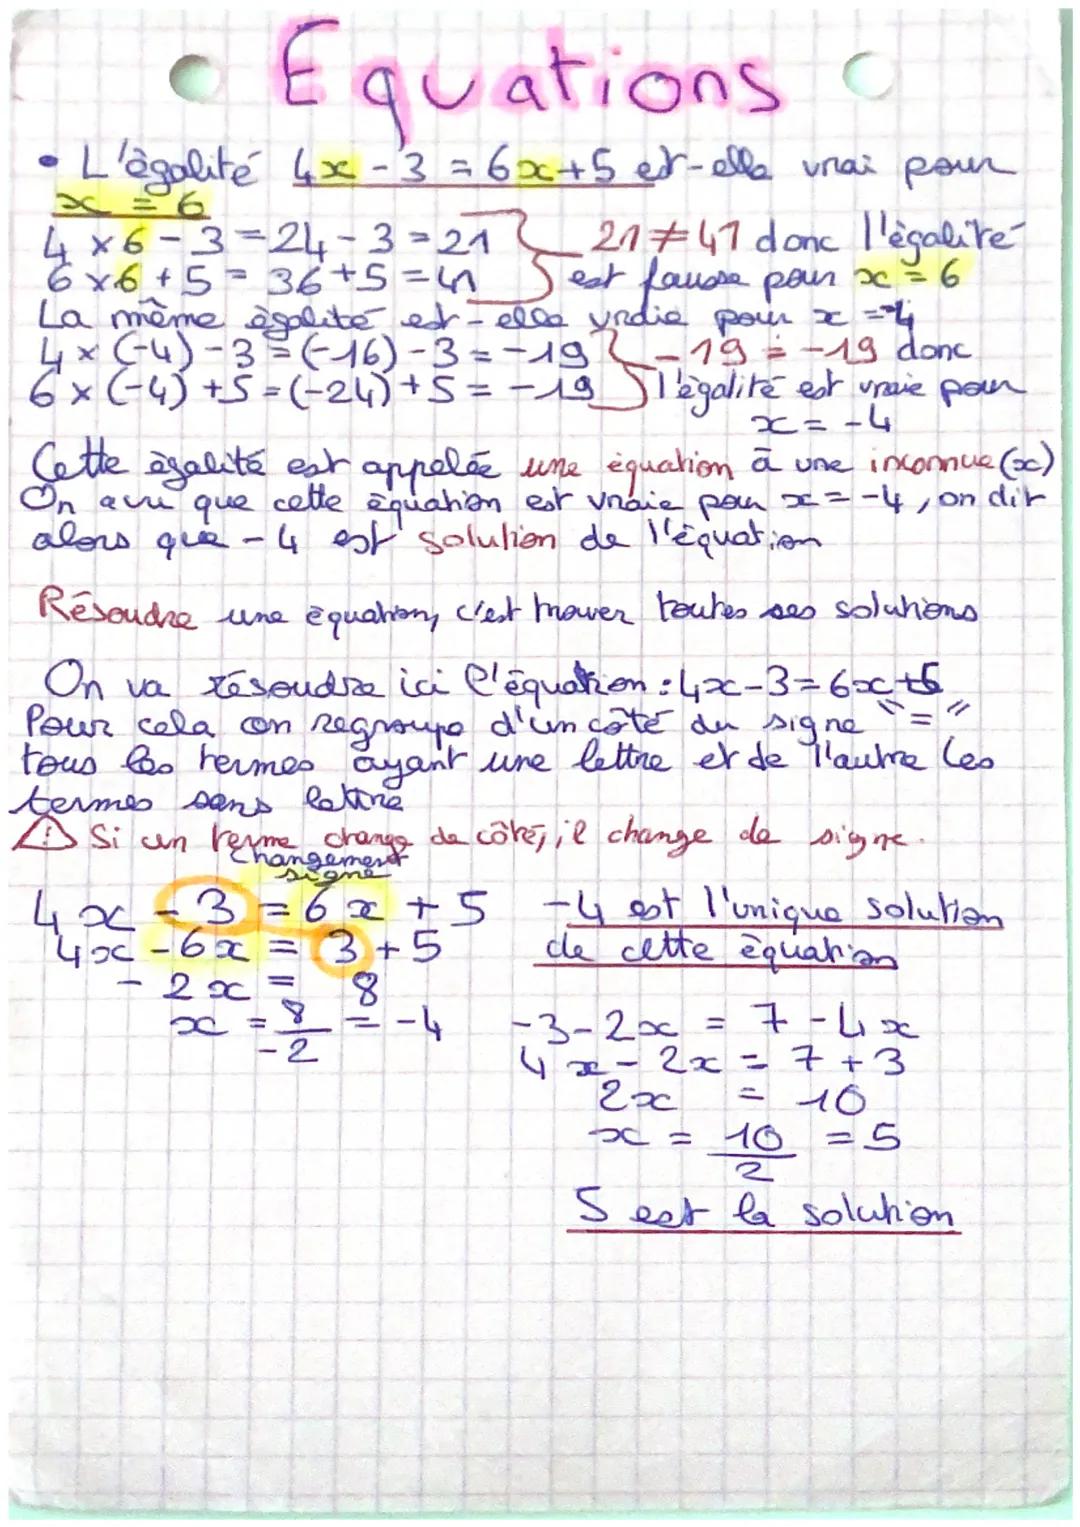 Equations
• L'égalité 4x - 3 = 6x + 5 est-elle vrai pour
x = 6
4 × 6 - 3 = 24 - 3 = 21
6 × 6 + 5 = 36 + 5 = 41
21 ≠ 41 donc l'égalité
est fausse pour x = 6
La même égalité est-elle vraie pour x = -4
4 × (-4) - 3 = (-16) - 3 = -19
6 × (-4) + 5 = (-24) + 5 = -19
-19 = -19 donc
l'égalité est vraie pour
x = -4
Cette égalité est appelée une équation à une inconnue (x)
On a vu que cette équation est vraie pour x = -4, on dit
alors que -4 est solution de l'équation
Résoudre une équation, c'est trouver toutes ses solutions
On va résoudre ici l'équation : 4x - 3 = 6x + 5
Pour cela on regroupe d'un côté du signe "="
tous les termes ayant une lettre et de l'autre les
termes sans lettre
⚠ Si un terme change de côté, il change de signe.
Changement
signe
4x - 3 = 6x + 5
4x - 6x = 3 + 5
- 2x = 8
x = 8/-2 = -4
-4 est l'unique solution
de cette équation
-3 - 2x = 7 - 4x
4x - 2x = 7 + 3
2x = 10
x = 10/2 = 5
5 est la solution